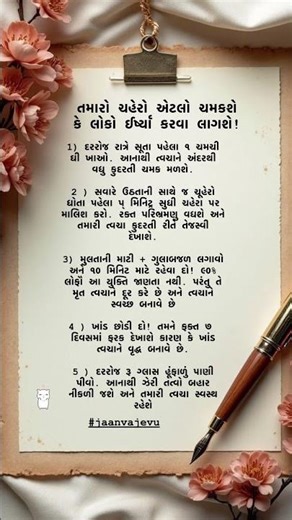 તમારો ચહેરો એટલો ચમકશે
કે લોકો ઈર્ષ્યા કરવા લાગશે!
1) દરરોજ રાત્રે સૂતા પહેલા ૧ ચમચી
ઘી ખાઓ. આનાથી ત્વચાને અંદરથી
વધુ કુદરતી ચમક મળશે.
2 ) સવારે ઉઠતાની સાથે જ ચહેરો
ધોતા પહેલા ૫ મિનિટ સુધી ચહેરા પર
માલિશ કરો. રક્ત પરિભ્રમણ વધશે અને
તમારી ત્વચા કુદરતી રીતે તેજસ્વી
દેખાશે.
3) મુલતાની માટી + ગુલાબજળ લગાવો
અને ૧૦ મિનિટ માટે રહેવા દો! ૯૦%
લોકો આ યુક્તિ જાણતા નથી. પરંતુ તે
મૃત ત્વચાને દૂર કરે છે અને ત્વચાને
સ્વચ્છ બનાવે છે
4 ) ખાંડ છોડી દો! તમને ફક્ત ૭
દિવસમાં ફરક દેખાશે કારણ કે ખાંડ
ત્વચાને વૃદ્ધ બનાવે છે.
5 ) દરરોજ ૩ ગ્લાસ હૂંફાળું પાણી
પીવો. આનાથી ઝેરી તત્વો બહાર
નીકળી જશે અને તમારી ત્વચા સ્વસ્થ
રહેશે
#jaanvajevu